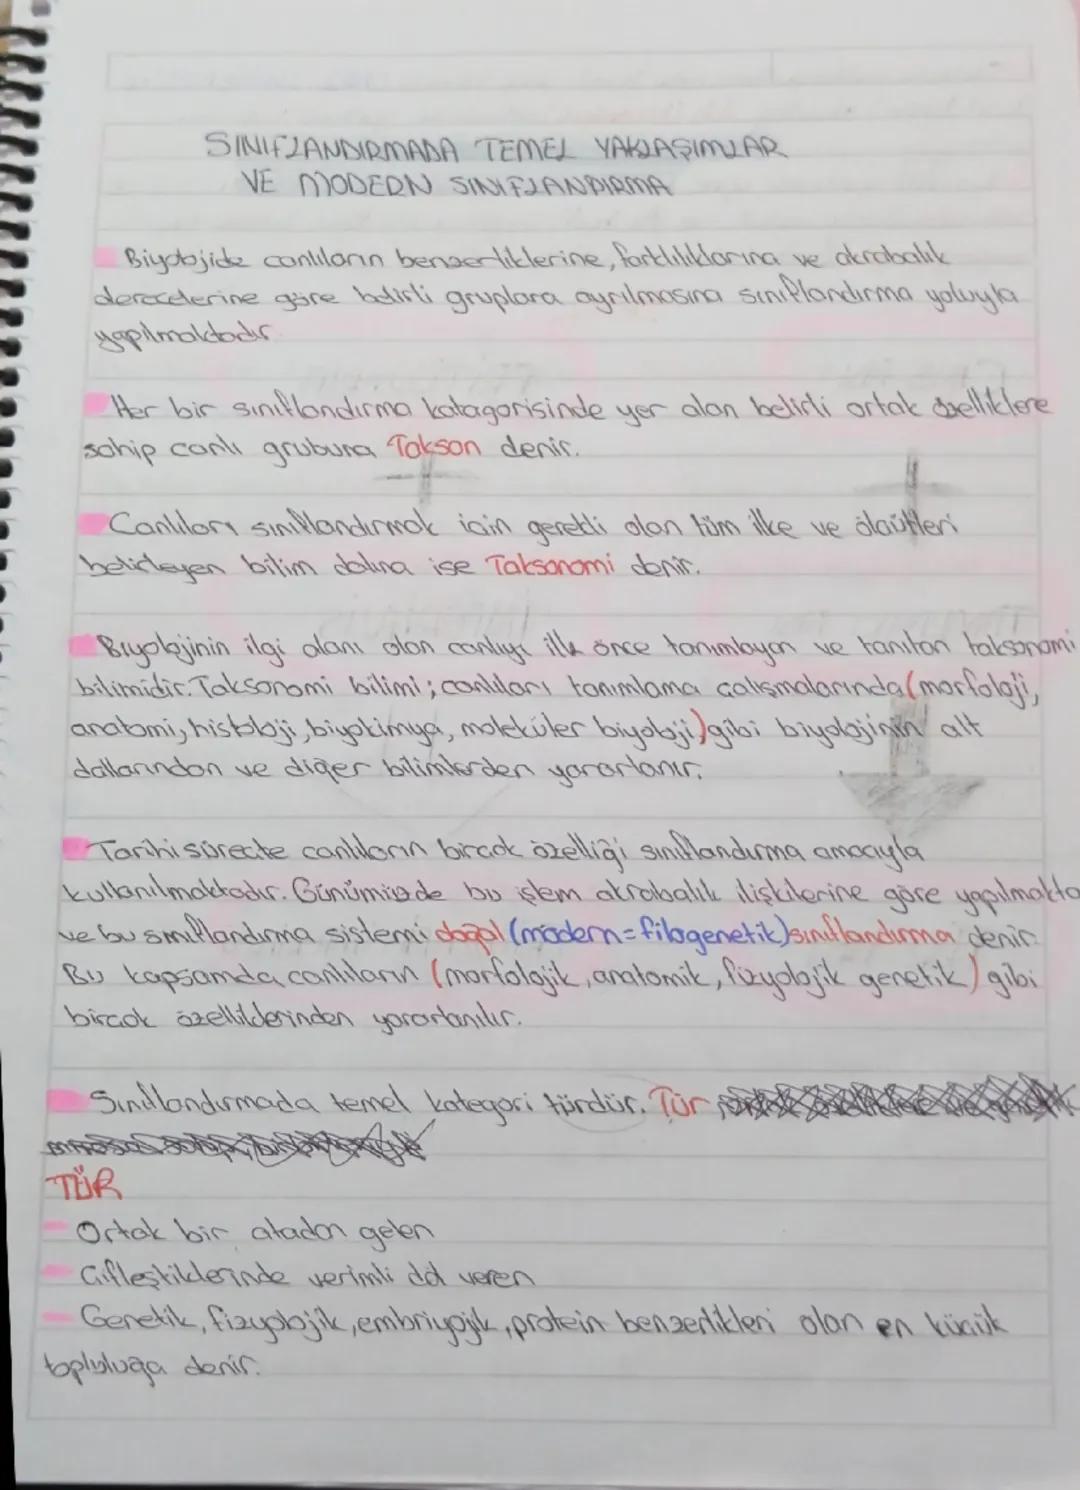 SINIFLANDIRMADA TEMEL YAKLAŞIMLAR
VE MODERN SINIFLANDIRMA
Biyolojide canlıların benzerliklerine, farklılıklarına ve akrabalık
derecelerine göre belirli gruplara ayrılmasına sınıflandırma yoluyla
yapılmaktadır.
Her bir sınıflandırma katagorisinde yer alan belirli ortak özelliklere
sahip canlı grubuna Takson denir.
Canlıları sınıflandırmak için gerekli olan tüm ilke ve ölçütleri
belirleyen bilim dalına ise Taksonomi denir.
Biyolojinin ilgi alanı olan canlıyı ilk önce tanımlayan ve tanıtan taksonomi
bilimidir. Taksonomi bilimi; canlıları tanımlama çalışmalarında (morfoloji,
anatomi, histoloji, biyokimya, moleküler biyoloji) gibi biyolojinin alt
dallarından ve diğer bilimlerden yararlanır.
Tarihi süreçte canlıların birçok özelliği sınıflandırma amacıyla
kullanılmaktadır. Günümüzde bu işlem akrabalık ilişkilerine göre yapılmakta
ve bu sınıflandırma sistemi doğal (modern=filogenetik) sınıflandırma denir.
Bu kapsamda canlıların (morfolojik, anatomik, fizyolojik genetik) gibi
birçok özelliklerinden yararlanılır.
Sınıflandırmada temel kategori türdür. Tür
TÜR
Ortak bir atadan gelen
Çiftleştiklerinde verimli döl veren
Genetik, fizyolojik, embriyojik, protein benzerlikleri olan en küçük
topluluğa denir.